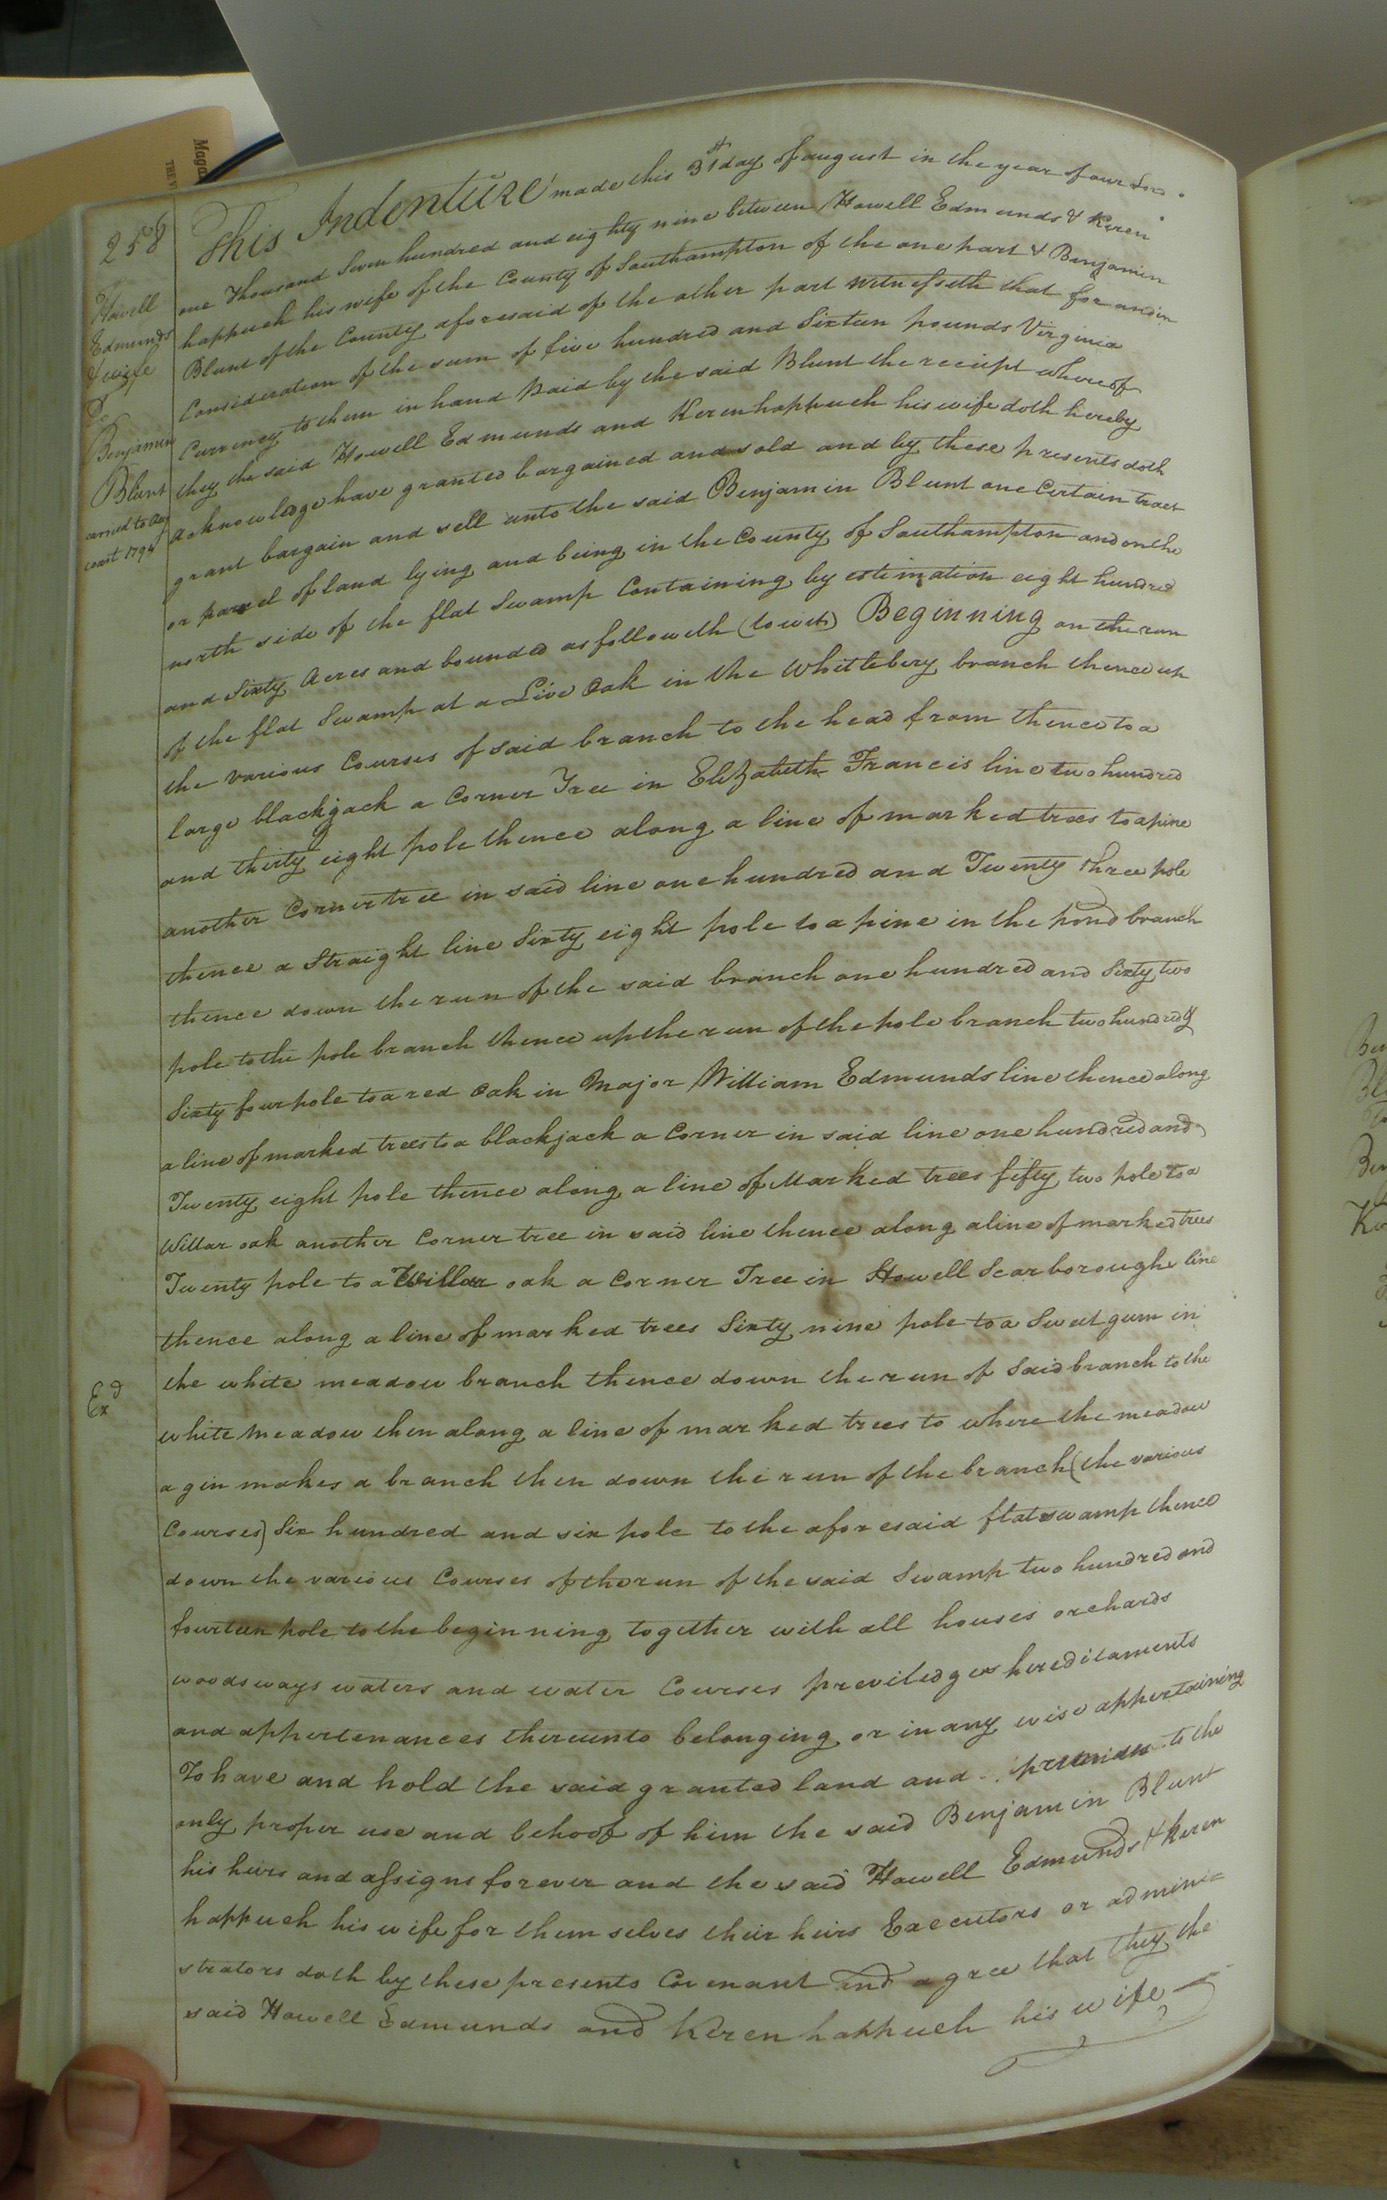 258
Howell
Edmunds
& wife
Do
Benjamin
Blunt
carried to Aug
court 1794
Exd
This Indenture made this 31st day of august in the year of our Lord
one Thousand Seven hundred and eighty nine between Howell Edmunds & Keren
happuch his wife of the County of Southampton of the one part & Benjamin
Blunt of the County aforesaid of the other part witnesseth that for and in
Consideration of the sum of five hundred and Sixteen pounds Virginia
Currency to them in hand paid by the said Blunt the receipt whereof
they the said Howell Edmunds and Kerenhappuch his wife doth hereby
acknowledge have granted bargained and sold and by these presents doth
grant bargain and sell unto the said Benjamin Blunt one Certain tract
or parcel of land lying and being in the County of Southampton and on the
north side of the flat Swamp Containing by estimation eight hundred
and Sixty Acres and bounded as followeth (towit) Beginning on the run
of the flat Swamp at a Live Oak in the Whitlebery branch thence up
the various Courses of said branch to the head from thence to a
large blackjack a Corner Tree in Elizabeth Francis line two hundred
and thirty eight pole thence along a line of marked trees to a pine
another Corner tree in said line one hundred and Twenty three pole
thence a Straight line Sixty eight pole to a pine in the pond branch
thence down the run of the said branch one hundred and Sixty two
pole to the pole branch thence up the run of the pole branch two hundred &
Sixty four pole to a red oak in Major William Edmunds line thence along
a line of marked trees to a blackjack a Corner in said line one hundred and
Twenty eight pole thence along a line of Marked trees fifty two pole to a
Willar oak another Corner tree in said line thence along a line of marked trees
Twenty pole to a Willar oak a Corner Tree in Howell Scarboroughs line
thence along a line of marked trees Sixty nine pole to a Sweet gum in
the white meadow branch thence down the run of Said branch to the
white Meadow then along a line of marked trees to where the meadow
agin makes a branch then down the run of the branch (the various
Courses) Six hundred and six pole to the aforesaid flat swamp thence
down the various Courses of the run of the said Swamp two hundred and
fourteen pole to the beginning together with all houses orchards
woods ways waters and water Courses previledges hereditaments
and appertenances thereunto belonging or in any wise appertaining
To have and hold the said granted land and premises to the
only proper use and behoof of him the said Benjamin Blunt
his heirs and assigns forever and the said Howell Edmunds & Keren
happuch his wife for them selves their heirs Executors or admini=
strators doth by these presents Covenant and agree that they the
said Howell Edmunds and Keren happuch his wife